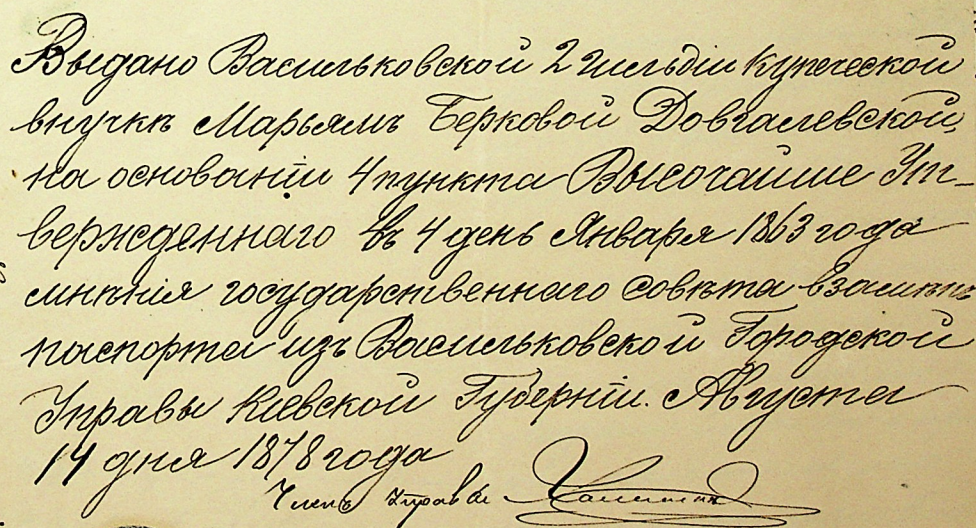 Выдано Васильковской 2 гильдіи купеческой
внучкѣ Марьямъ Берковой Довгалевской,
на основаніи 4 пункта Высочайше Ут-
вержденнаго въ 4 день Января 1863 года
мнѣнія государственнаго совѣта взамѣнъ
паспорта изъ Васильковской Городской
Управы Кіевской Губерніи. Августа
14 дня 1878 года
Членъ Управы